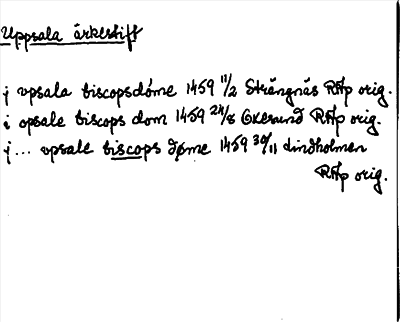 Uppsala ärkestift
j vpsala biscopsdóme 1459 11/2 Strängnäs RAp orig.
i opsale biscops dom 1459 24/8 Ekesund RAp orig.
j... vpsale biscops døme 1459 30/11 Lindholmen
RAp orig.